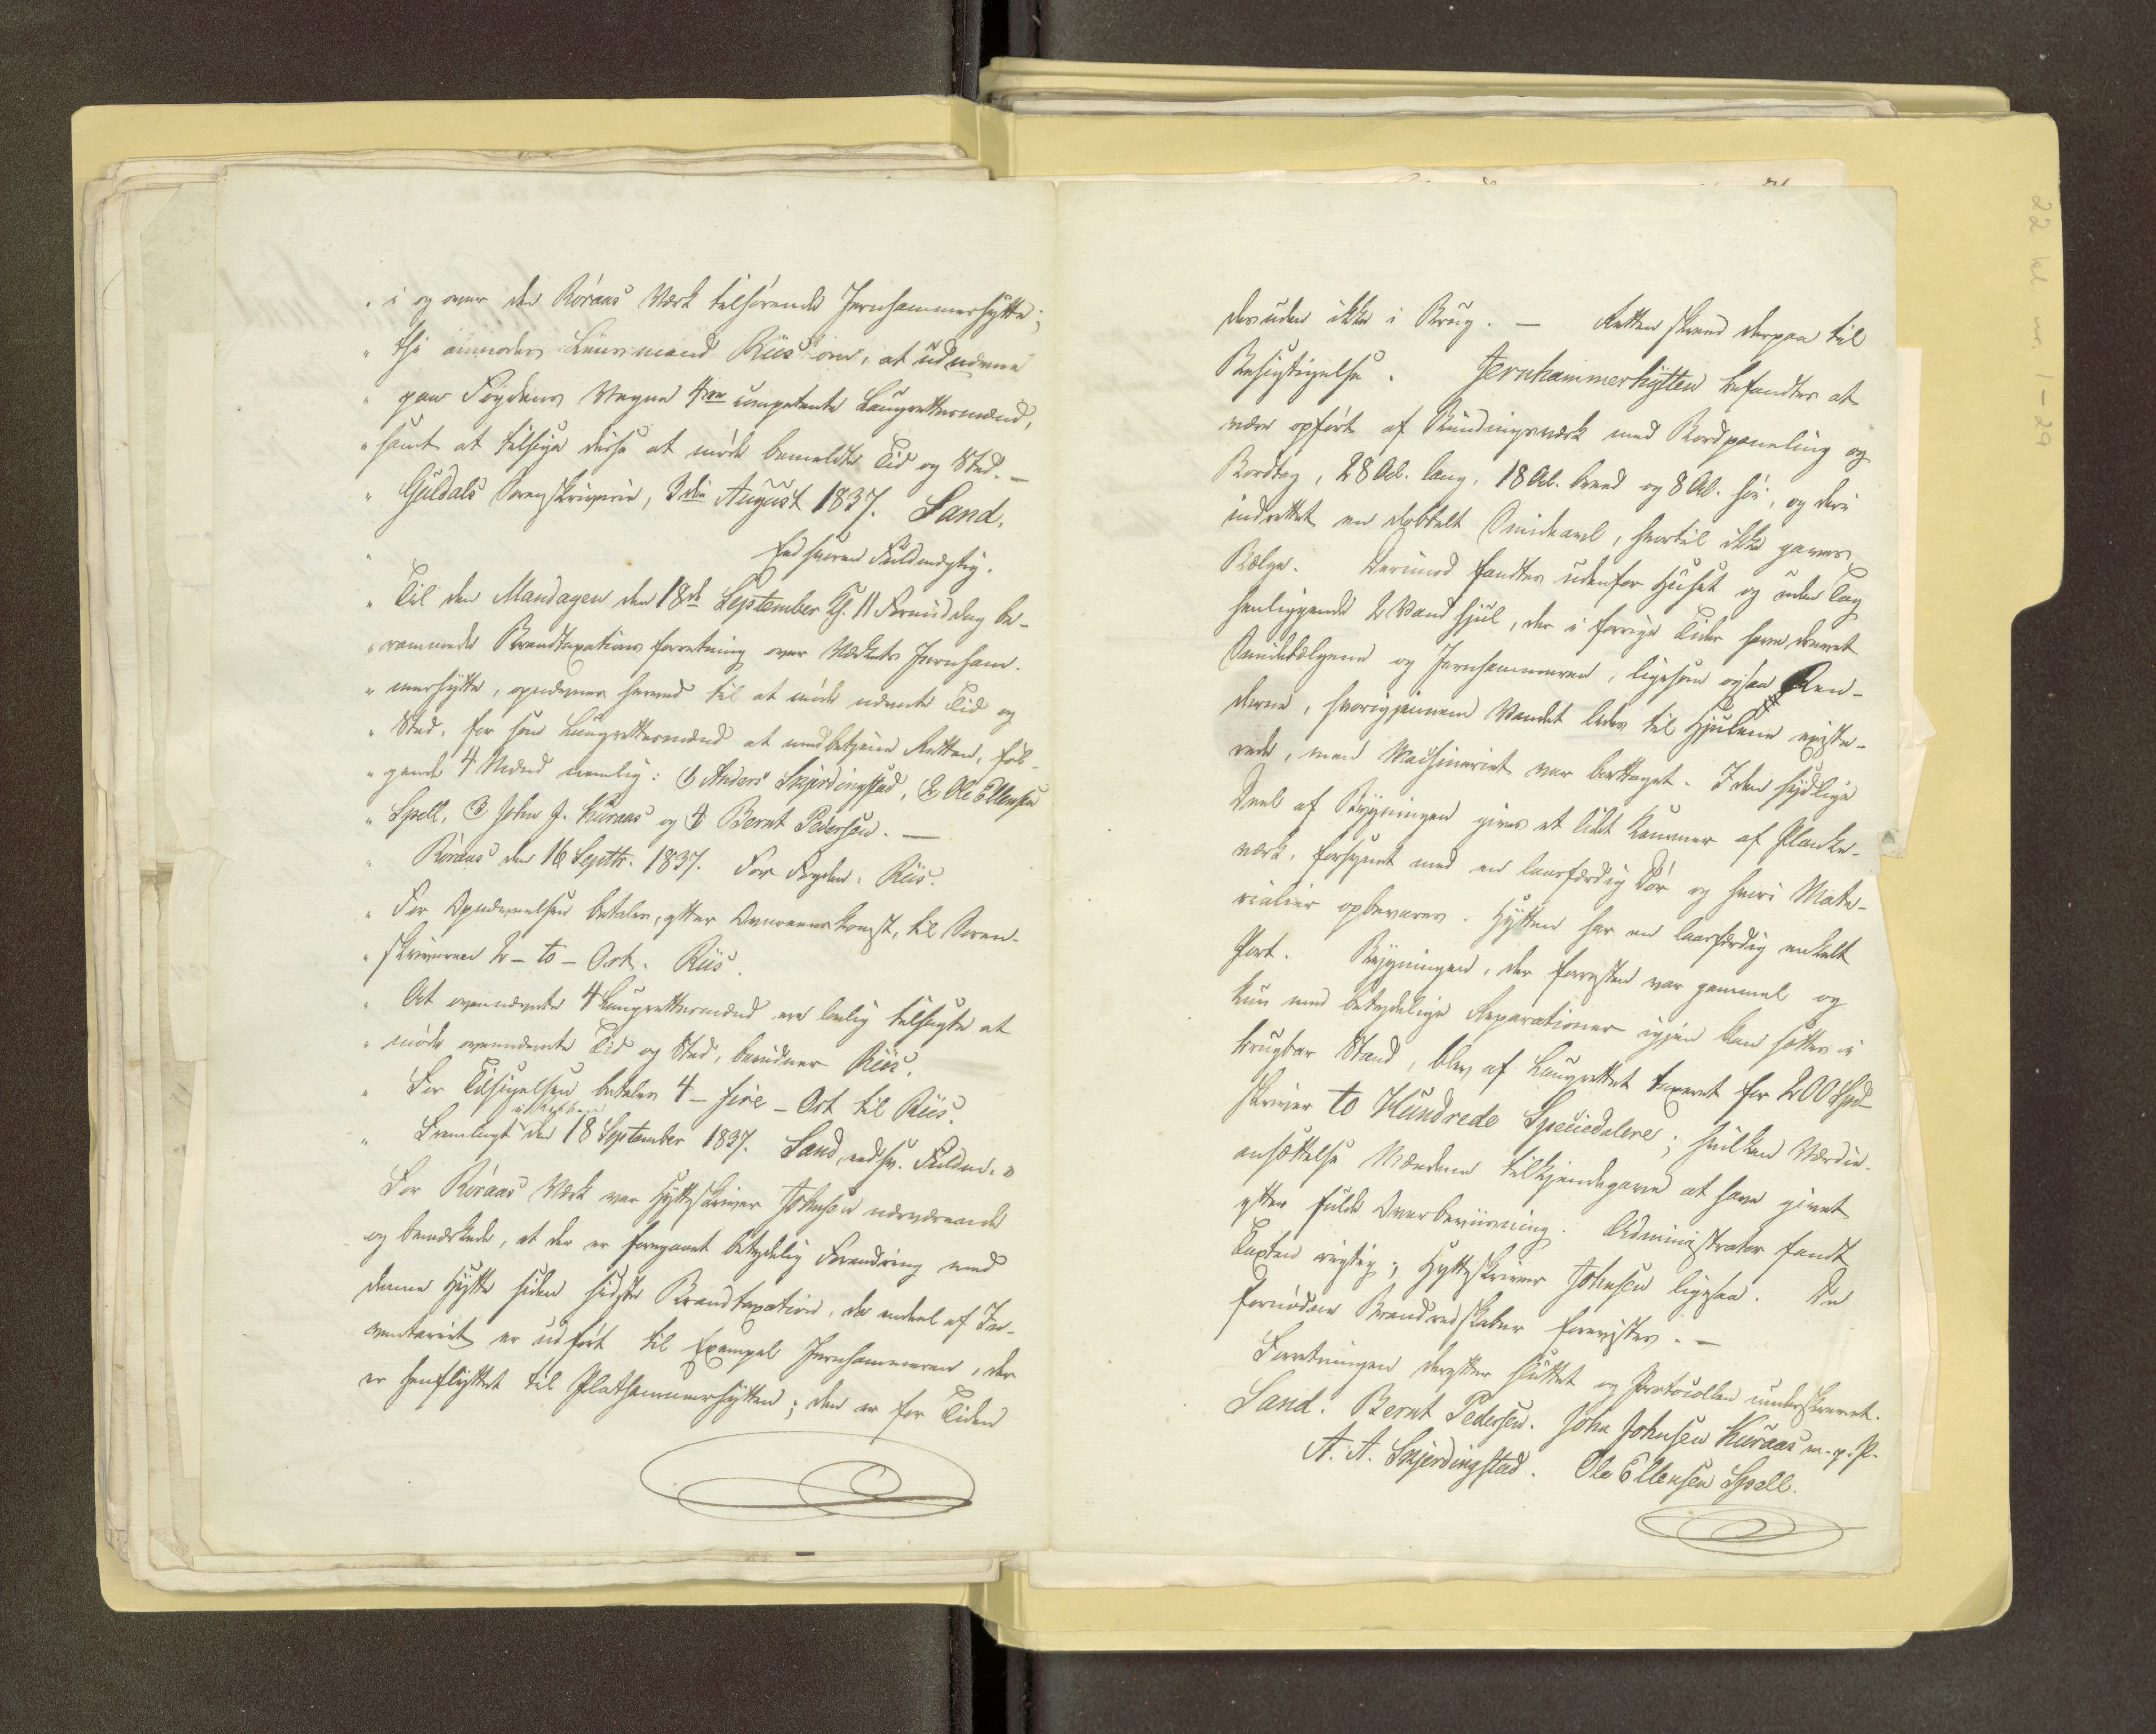 " i og over den Röraas Værk tilhörende Jernhammerhytte;
" thi anmodes Lensmand Riis om, at udnævne
" paa Fogdens Vegne 4re competente Laugrettesmænd,
" samt at tilsige disse at möde bemeldte Tid og Sted. —
" Guldals Sorenskriverie, 3die August 1837. Sand,
" Eedsvoren Fuldmægtig.
" Til den Mandagen den 18de September Kl. 11 Formiddag be-
" rammede Brandtaxations forretning over Værkets Jernham-
" merhytte, opnævnes herved til at möde nævnte Tid og
" Sted, for som Laugrettesmænd at medbetjene Retten, föl-
" gende 4 Mænd nemlig: 1, Anders Skjerdingstad, 2, Ole Ellensen
" Spell, 3, John J. Kuraas og 4, Bernt Pedersen. —
" Röraas den 16 Septbr. 1837. For Fogden: Riis.
" For Opnævnelsen betales, efter Overeenskomst, til Soren-
" skriveren 2 - to - Ort. Riis.
" At ovennævnte 4 Laugrettesmænd ere lovlig tilsagte at
" möde ovennævnte Tid og Sted, bevidner Riis.
" For Tilsigelsen betales 4 - fire - Ort til Riis.
" Fremlagt i Retten den 18 September 1837. Sand, eedsv. Fuldm. "
For Röraas Værk var Hytteskriver Johnsen nærværende
og bemærkede, at der er foregaaet betydelig Forandring med
denne Hytte siden sidste Brandtaxation, da endeel af In-
ventariet er udfört til Exempel Jernhammeren, der
er henflyttet til Plathammerhytten; den er for Tiden
desuden ikke i Brug. — Retten skreed derpaa til
Besigtigelse. Jernhammerhytten befandtes at
være opfört af Bindingsværk med Bordpaneling og
Bordtag, 28 Al. lang, 18 Al. breed og 8 Al. höi, og deri
indrettet en dobbelt Smideavl, hvortil ikke haves
Bælge. Derimod fandtes udenfor Huset og under Tag
henliggende 2 Vandhjul, der i forrige Tider have drevet
Smidebælgene og Jernhammeren, ligesom ogsaa Ren-
derne, hvorigjennem Vandet ledes til Hjulene existe-
rede, men Maschineriet var borttaget. I den sydlige
Deel af Bygningen gives et lidet Kammer af Planke-
værk, forsynet med en laasfærdig Dör og hvori Mate-
rialier opbevares. Hytten har en laasfærdig enkelt
Port. Bygningen, der forresten var gammel og
kun med betydelige Reparationer igjen kan sættes i
brugbar Stand, blev af Laugrettet taxeret for 200 Spd.
skriver to Hundrede Speciedalere; hvilken Værdie-
ansættelse Mændene tilkjendegave at have givet
efter fulde Overbeviisning. Administrator fandt
Taxten rigtig; Hytteskriver Johnsen ligesaa. De
fornödne Brandredskaber forevistes. —
Forretningen derefter sluttet og Protocollen underskrevet.
Sand. Bernt Pedersen. John Johnsen Kuraas m. p. P.
A. A. Skjerdingstad. Ole Ellensen Spell.
22 kl nr. 1-29